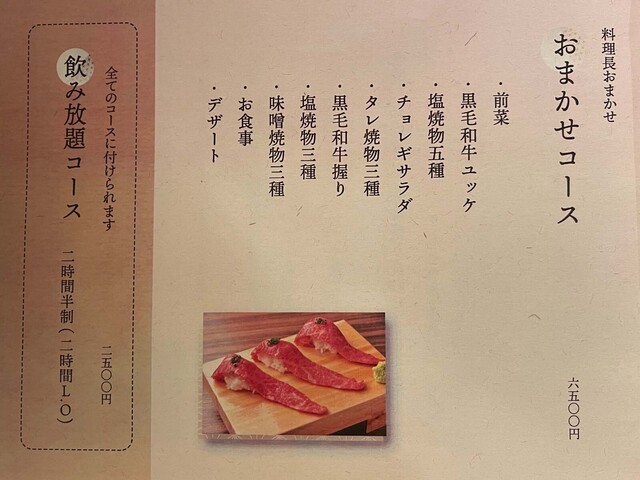 料理長おまかせ
おまかせコース
六五〇〇円
・前菜
・黒毛和牛ユッケ
・塩焼物五種
・チョレギサラダ
・タレ焼物三種
・黒毛和牛握り
・塩焼物三種
・味噌焼物三種
・お食事
・デザート
全てのコースに付けられます
二五〇〇円
飲み放題コース
二時間半制(二時間L.O)